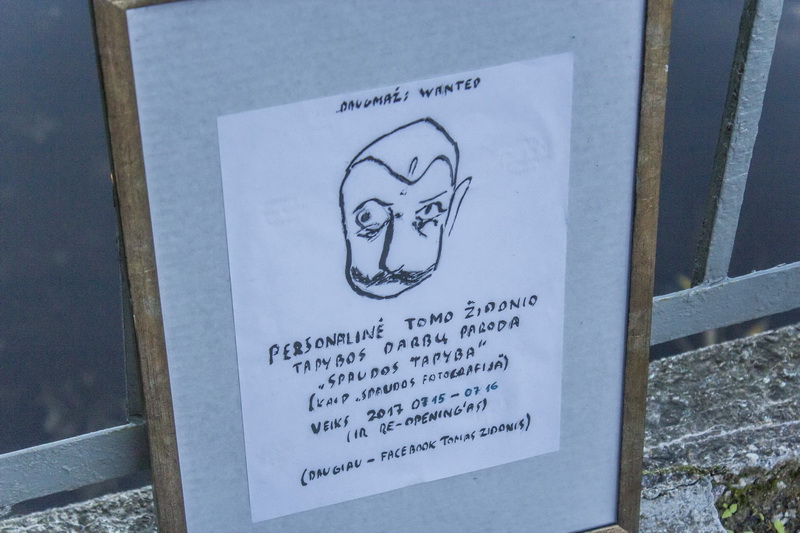 DAUGMAŽ: WANTED
PERSONALINĖ TOMO ŽIDONIO
TAPYBOS DARBŲ PARODA
„SPAUDOS TAPYBA“
(KAIP „SPAUDOS FOTOGRAFIJA“)
VEIKS 2017 0715 – 0716
(IR RE-OPENING'AS)
(DAUGIAU – FACEBOOK TOMAS ZIDONIS)